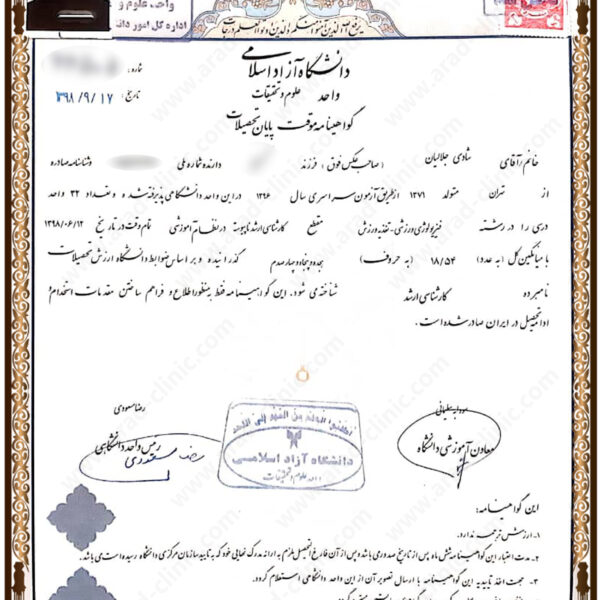 واحد علوم و
اداره کل امور دانش
یرفع الله الذین آمنوا منکم و الذین اوتوا العلم درجات
دانشگاه آزاد اسلامی
شماره:
واحد علوم و تحقیقات
تاریخ: ۱۳۹۸/۹/۱۷
گواهینامه موقت پایان تحصیلات
خانم / آقای شادی جلالیان (صاحب عکس فوق) فرزند دارنده شماره ملی و شناسنامه صادره
از تهران متولد ۱۳۷۱ از طریق آزمون سراسری سال ۱۳۹۶ در این واحد دانشگاهی پذیرفته شده و تعداد ۳۲ واحد
درسی را در رشته فیزیولوژی ورزشی - تغذیه ورزش مقطع کارشناسی ارشد ناپیوسته در نظام آموزشی تمام وقت در تاریخ ۱۳۹۸/۰۶/۱۲
با میانگین کل (به عدد) ۱۸/۵۴ (به حروف) هجده و پنجاه و چهار صدم گذرانیده و بر اساس ضوابط دانشگاه ارزش تحصیلات
نامبرده کارشناسی ارشد شناخته می شود. این گواهینامه فقط به منظور اطلاع و فراهم ساختن مقدمات استخدام/
ادامه تحصیل در ایران صادر شده است.
رضا مسعودی
معاون آموزشی دانشگاه
رئیس واحد دانشگاهی
اطلبوا العلم من المهد الی اللحد
دانشگاه آزاد اسلامی
واحد علوم و تحقیقات
این گواهینامه:
۱- ارزش ترجمه ندارد.
۲- مدت اعتبار این گواهینامه شش ماه پس از تاریخ صدور می باشد و پس از آن فارغ التحصیل ملزم به ارائه مدرک نهایی خود که به تایید سازمان مرکزی دانشگاه رسیده است می باشد.
۳- جهت اخذ تاییدیه این گواهینامه با ارسال تصویر آن از این واحد دانشگاهی استعلام گردد.
www.arad-clinic.com